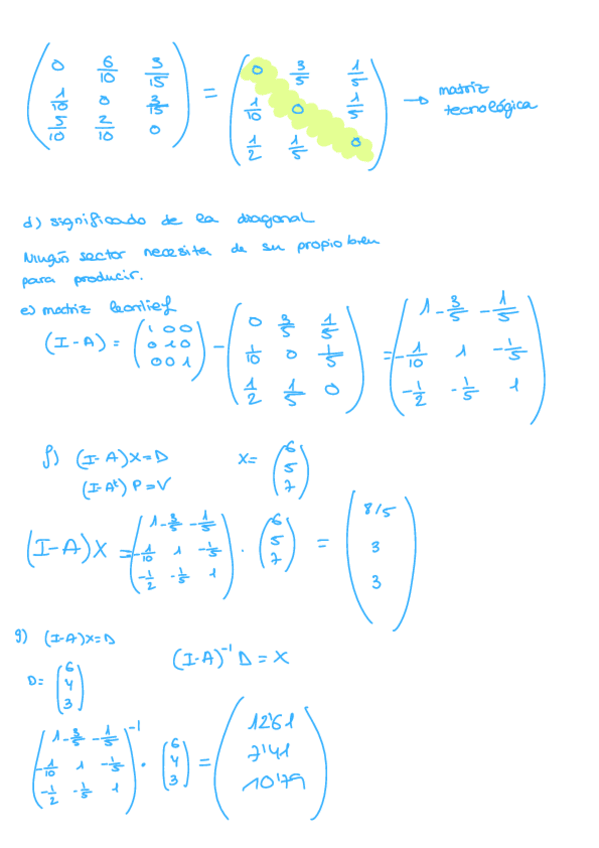 ( 0 6/10 3/15 ; 1/10 0 3/15 ; 5/10 2/10 0 ) = ( 0 3/5 1/5 ; 1/10 0 1/5 ; 1/2 1/5 0 ) → matriz tecnológica
d) significado de la diagonal
Ningún sector necesita de su propio bien
para producir.
e) matriz leontief
(I-A) = ( 1 0 0 ; 0 1 0 ; 0 0 1 ) - ( 0 3/5 1/5 ; 1/10 0 1/5 ; 1/2 1/5 0 ) = ( 1 -3/5 -1/5 ; -1/10 1 -1/5 ; -1/2 -1/5 1 )
f) (I-A)X=D X= ( 6 ; 5 ; 7 )
(I-At) P=V
(I-A)X = ( 1 -3/5 -1/5 ; -1/10 1 -1/5 ; -1/2 -1/5 1 ) · ( 6 ; 5 ; 7 ) = ( 8/5 ; 3 ; 3 )
g) (I-A)X=D
(I-A)-1 D = X
D= ( 6 ; 4 ; 3 )
( 1 -3/5 -1/5 ; -1/10 1 -1/5 ; -1/2 -1/5 1 )-1 · ( 6 ; 4 ; 3 ) = ( 12'61 ; 7'41 ; 10'79 )